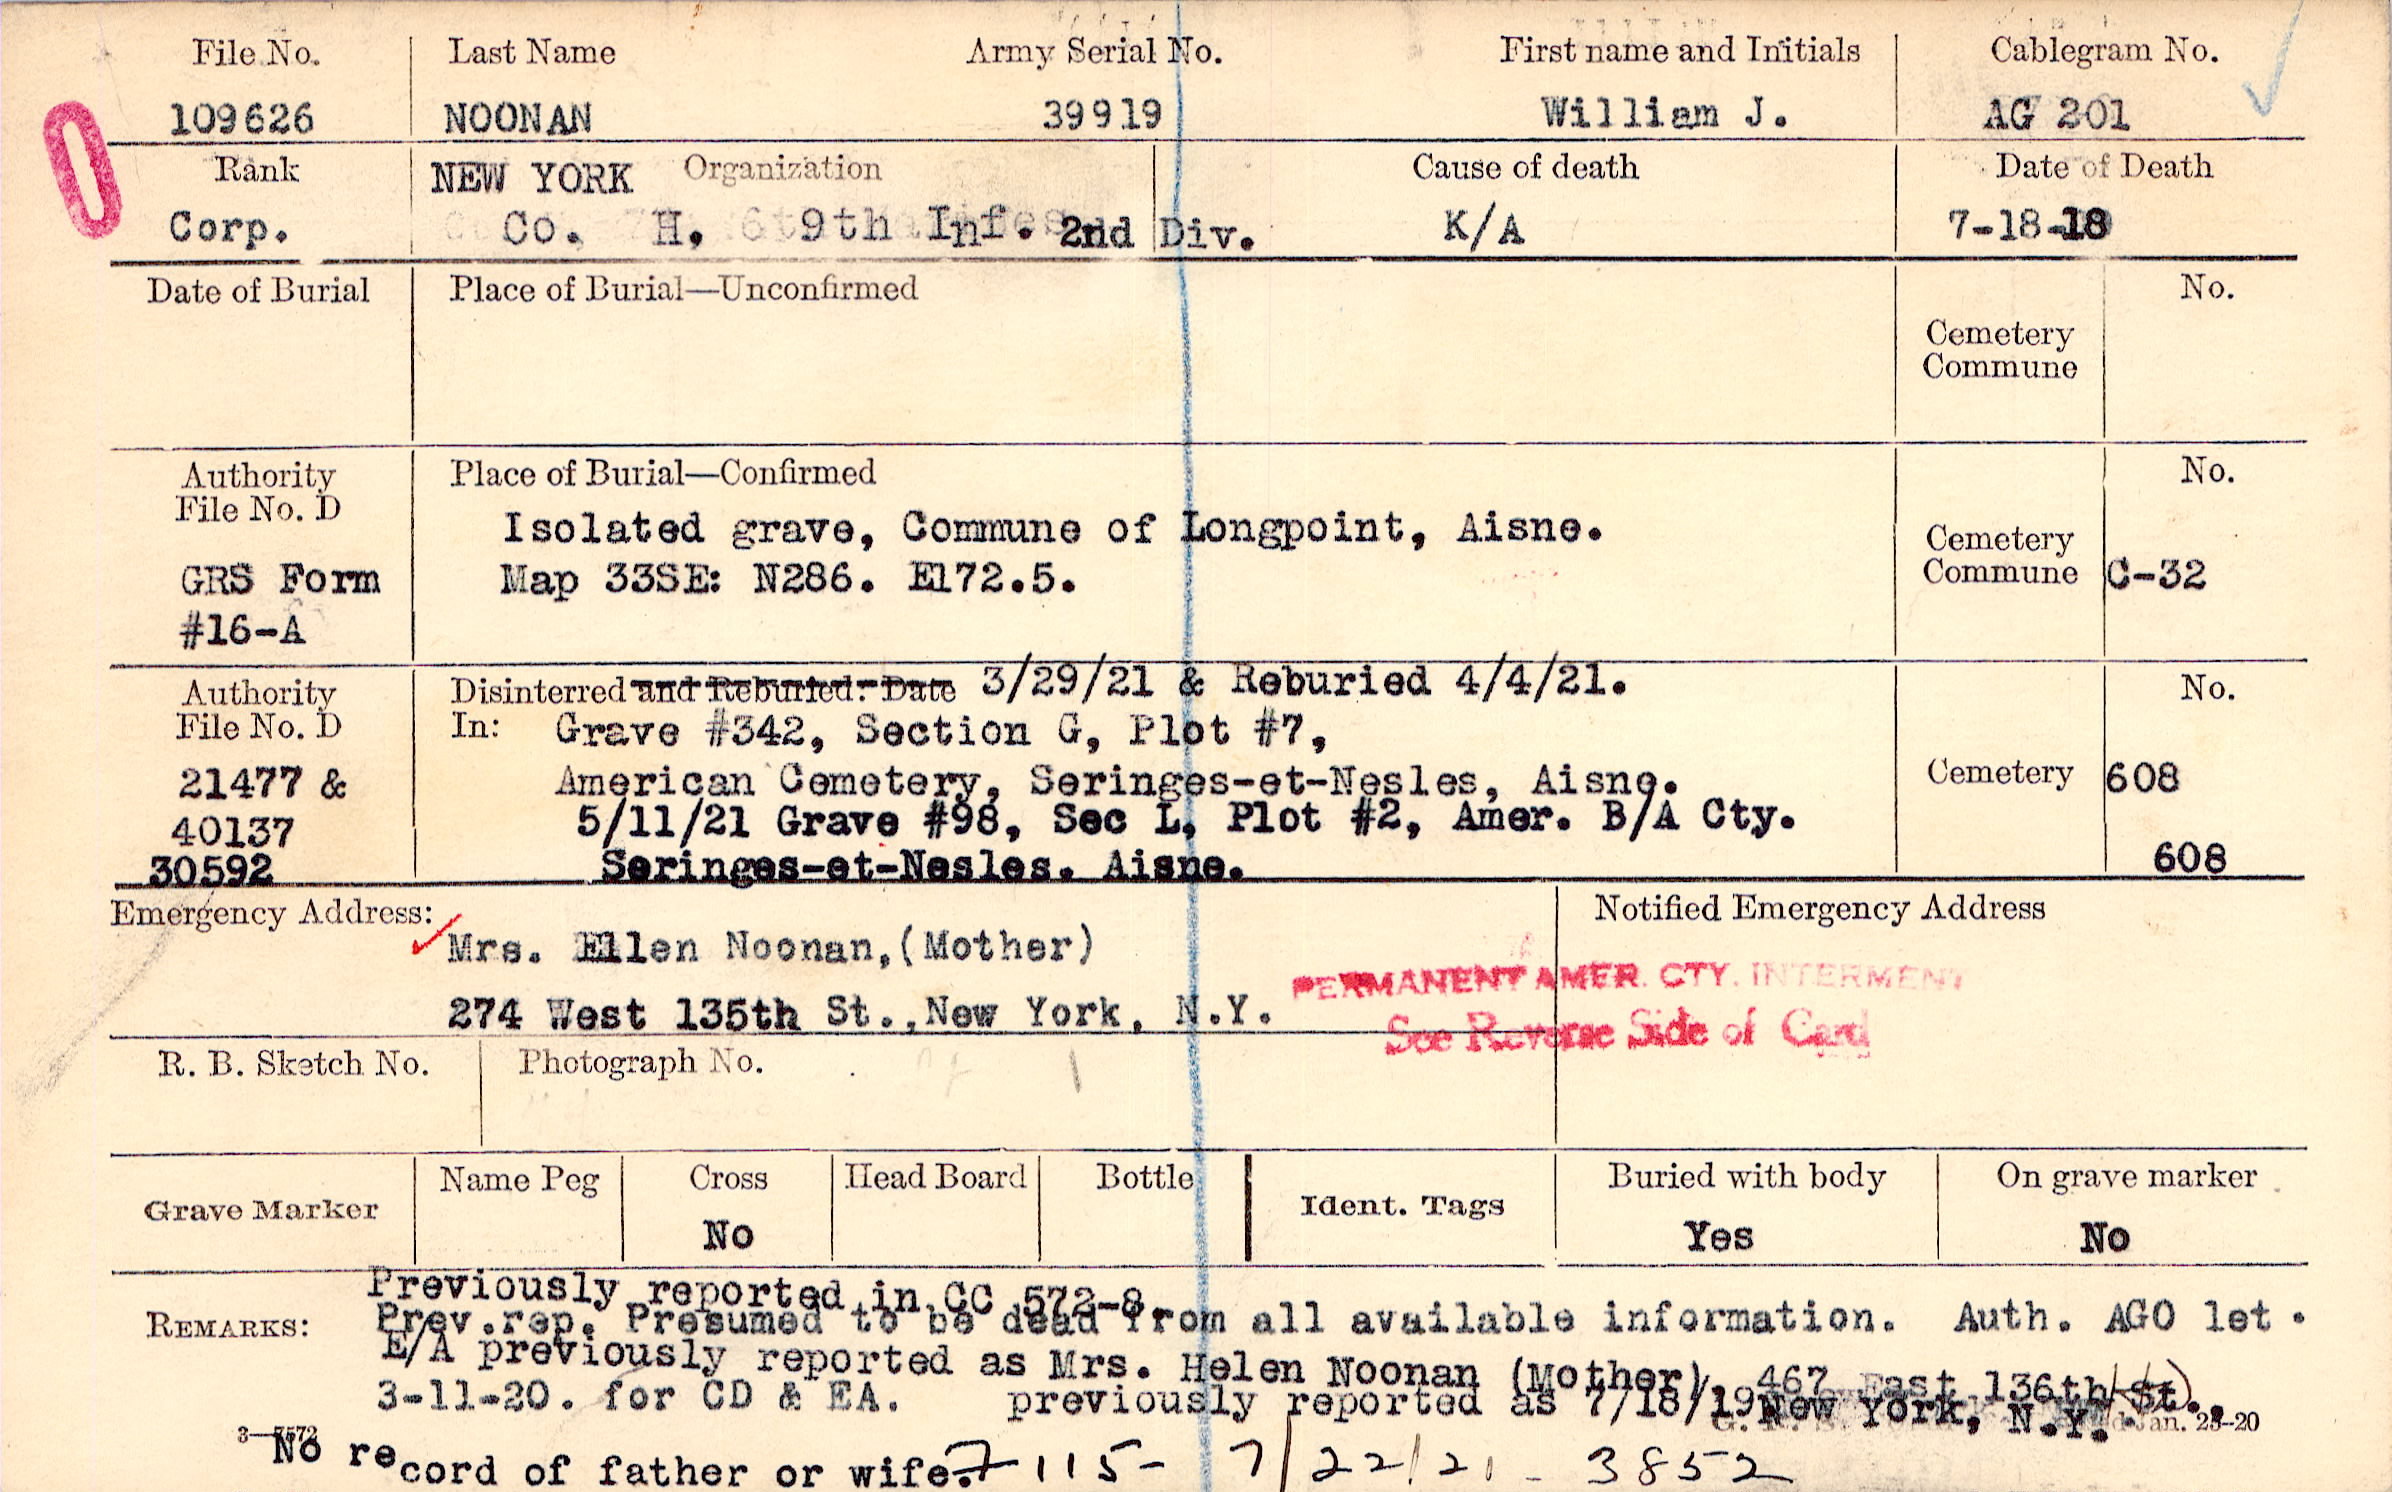 File No. Last Name Army Serial No. First name and Initials Cablegram No.
109626 NOONAN 39919 William J. AG 201
Rank NEW YORK Organization Cause of death Date of Death
Corp. Co. H. 9th Inf. 2nd Div. K/A 7-18-18
Date of Burial Place of Burial—Unconfirmed No.
Cemetery
Commune
Authority Place of Burial—Confirmed No.
File No. D
Isolated grave, Commune of Longpoint, Aisne.
Cemetery
GRS Form Map 33SE: N286. E172.5. Commune C-32
#16-A
Authority Disinterred and Reburied: Date 3/29/21 & Reburied 4/4/21. No.
File No. D In: Grave #342, Section G, Plot #7,
21477 & American Cemetery, Seringes-et-Nesles, Aisne. Cemetery 608
40137 5/11/21 Grave #98, Sec L, Plot #2, Amer. B/A Cty.
30592 Seringes-et-Nesles. Aisne. 608
Emergency Address: Notified Emergency Address
Mrs. Ellen Noonan,(Mother)
PERMANENT AMER. CTY. INTERMENT
274 West 135th St.,New York, N.Y.
See Reverse Side of Card
R. B. Sketch No. Photograph No.
Grave Marker Name Peg Cross Head Board Bottle Ident. Tags Buried with body On grave marker
No Yes No
Previously reported in CC 572-8.
REMARKS: Prev.rep. Presumed to be dead from all available information. Auth. AGO let.
E/A previously reported as Mrs. Helen Noonan (Mother), 467 East 136th St.,
3-11-20. for CD & EA. previously reported as 7/18/19 New York, N.Y. Jan. 23-20
3—7572
No record of father or wife. 7 115- 7/22/21 - 3852